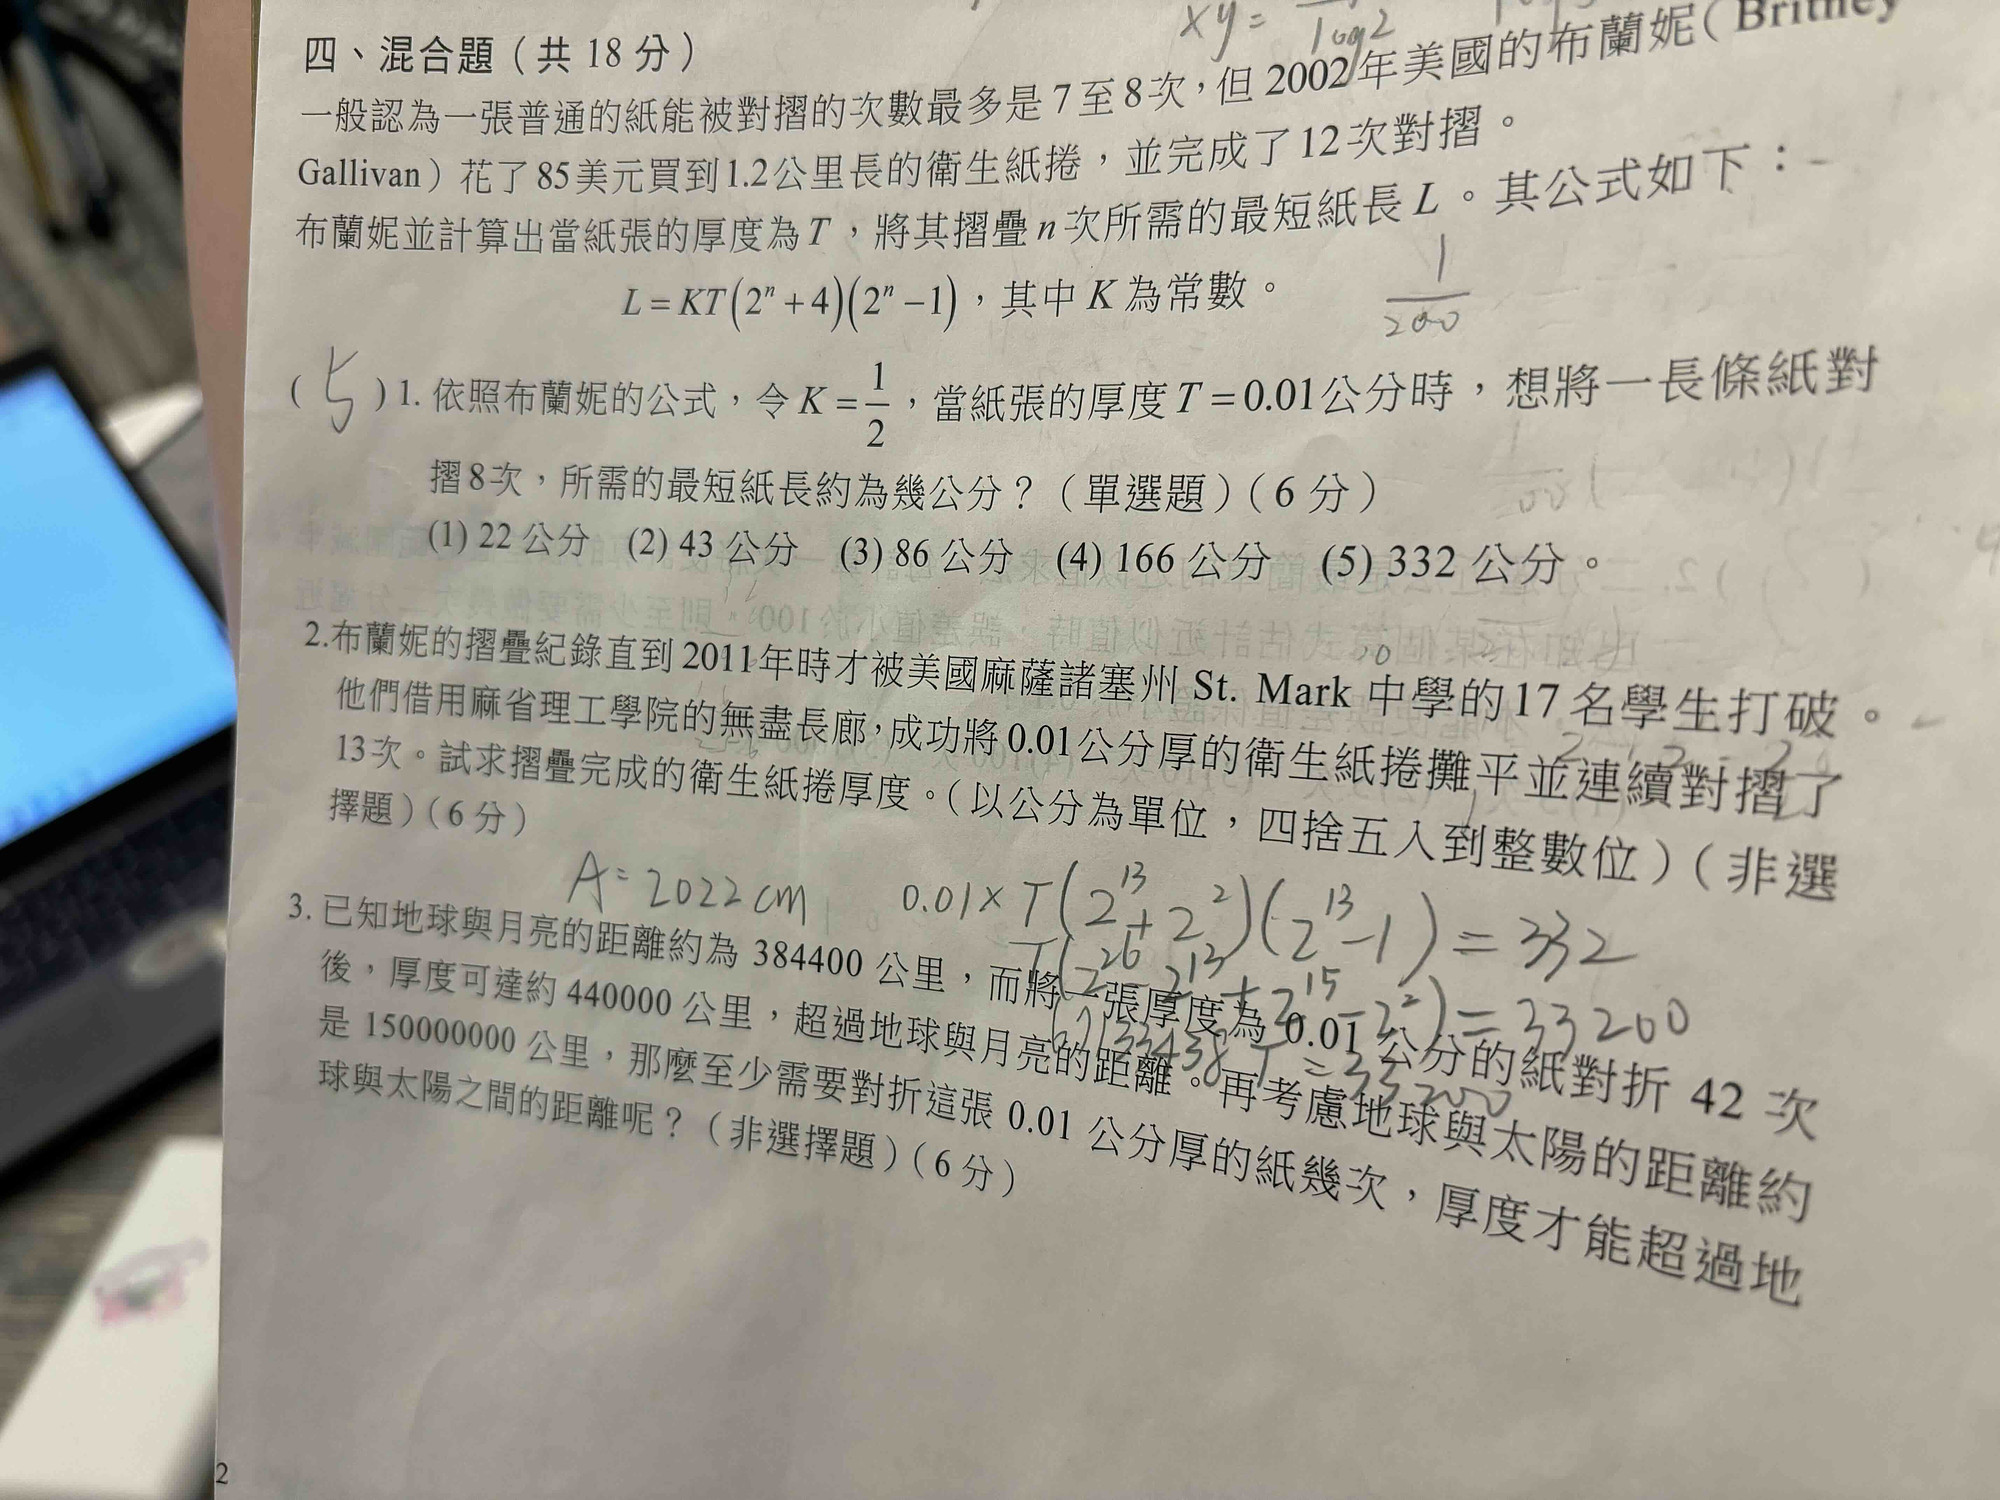 xy =
log2
四、混合題（共 18 分）
一般認為一張普通的紙能被對摺的次數最多是 7 至 8 次，但 2002 年美國的布蘭妮（Britney
Gallivan）花了 85 美元買到 1.2 公里長的衛生紙捲，並完成了 12 次對摺。
布蘭妮並計算出當紙張的厚度為 T，將其摺疊 n 次所需的最短紙長 L。其公式如下：
L = KT(2ⁿ + 4)(2ⁿ − 1)，其中 K 為常數。
1/200
( 5 ) 1. 依照布蘭妮的公式，令 K = 1/2，當紙張的厚度 T = 0.01 公分時，想將一長條紙對
摺 8 次，所需的最短紙長約為幾公分？（單選題）（6 分）
(1) 22 公分 (2) 43 公分 (3) 86 公分 (4) 166 公分 (5) 332 公分。
2. 布蘭妮的摺疊紀錄直到 2011 年時才被美國麻薩諸塞州 St. Mark 中學的 17 名學生打破。
他們借用麻省理工學院的無盡長廊，成功將 0.01 公分厚的衛生紙捲攤平並連續對摺了
13 次。試求摺疊完成的衛生紙捲厚度。（以公分為單位，四捨五入到整數位）（非選
擇題）（6 分）
A = 2022 cm
0.01 × T(2¹³ + 2²)(2¹³ − 1) = 332
T(2²⁶ − 2¹³ + 2¹⁵ − 2²) = 33200
T = 33200
3. 已知地球與月亮的距離約為 384400 公里，而將一張厚度為 0.01 公分的紙對折 42 次
後，厚度可達約 440000 公里，超過地球與月亮的距離。再考慮地球與太陽的距離約
是 150000000 公里，那麼至少需要對折這張 0.01 公分厚的紙幾次，厚度才能超過地
球與太陽之間的距離呢？（非選擇題）（6 分）
2